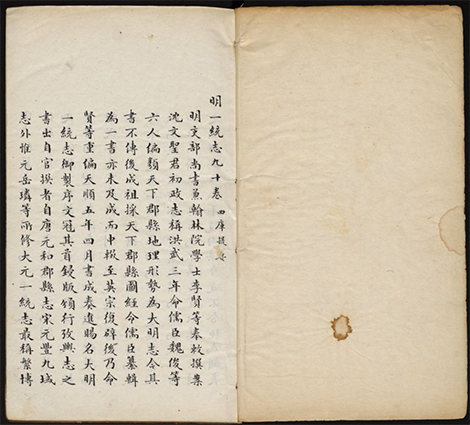 明一統志九十卷 四庫提要
明吏部尚書兼翰林院學士李賢等奉敕撰案
沈文聖君初政志稱洪武三年命儒臣魏俊等
六人編類天下郡縣地理形勢為大明志今其
書不傳後成祖採天下郡縣圖經命儒臣纂輯
為一書亦未及成而中輟至英宗復辟後乃命
賢等重編天順五年四月書成奏進賜名大明
一統志御製序文冠其首鋟版頒行考輿志之
書出自官撰者自唐元和郡縣志宋元豐九域
志外惟元岳璘等所修大元一統志最稱繁博